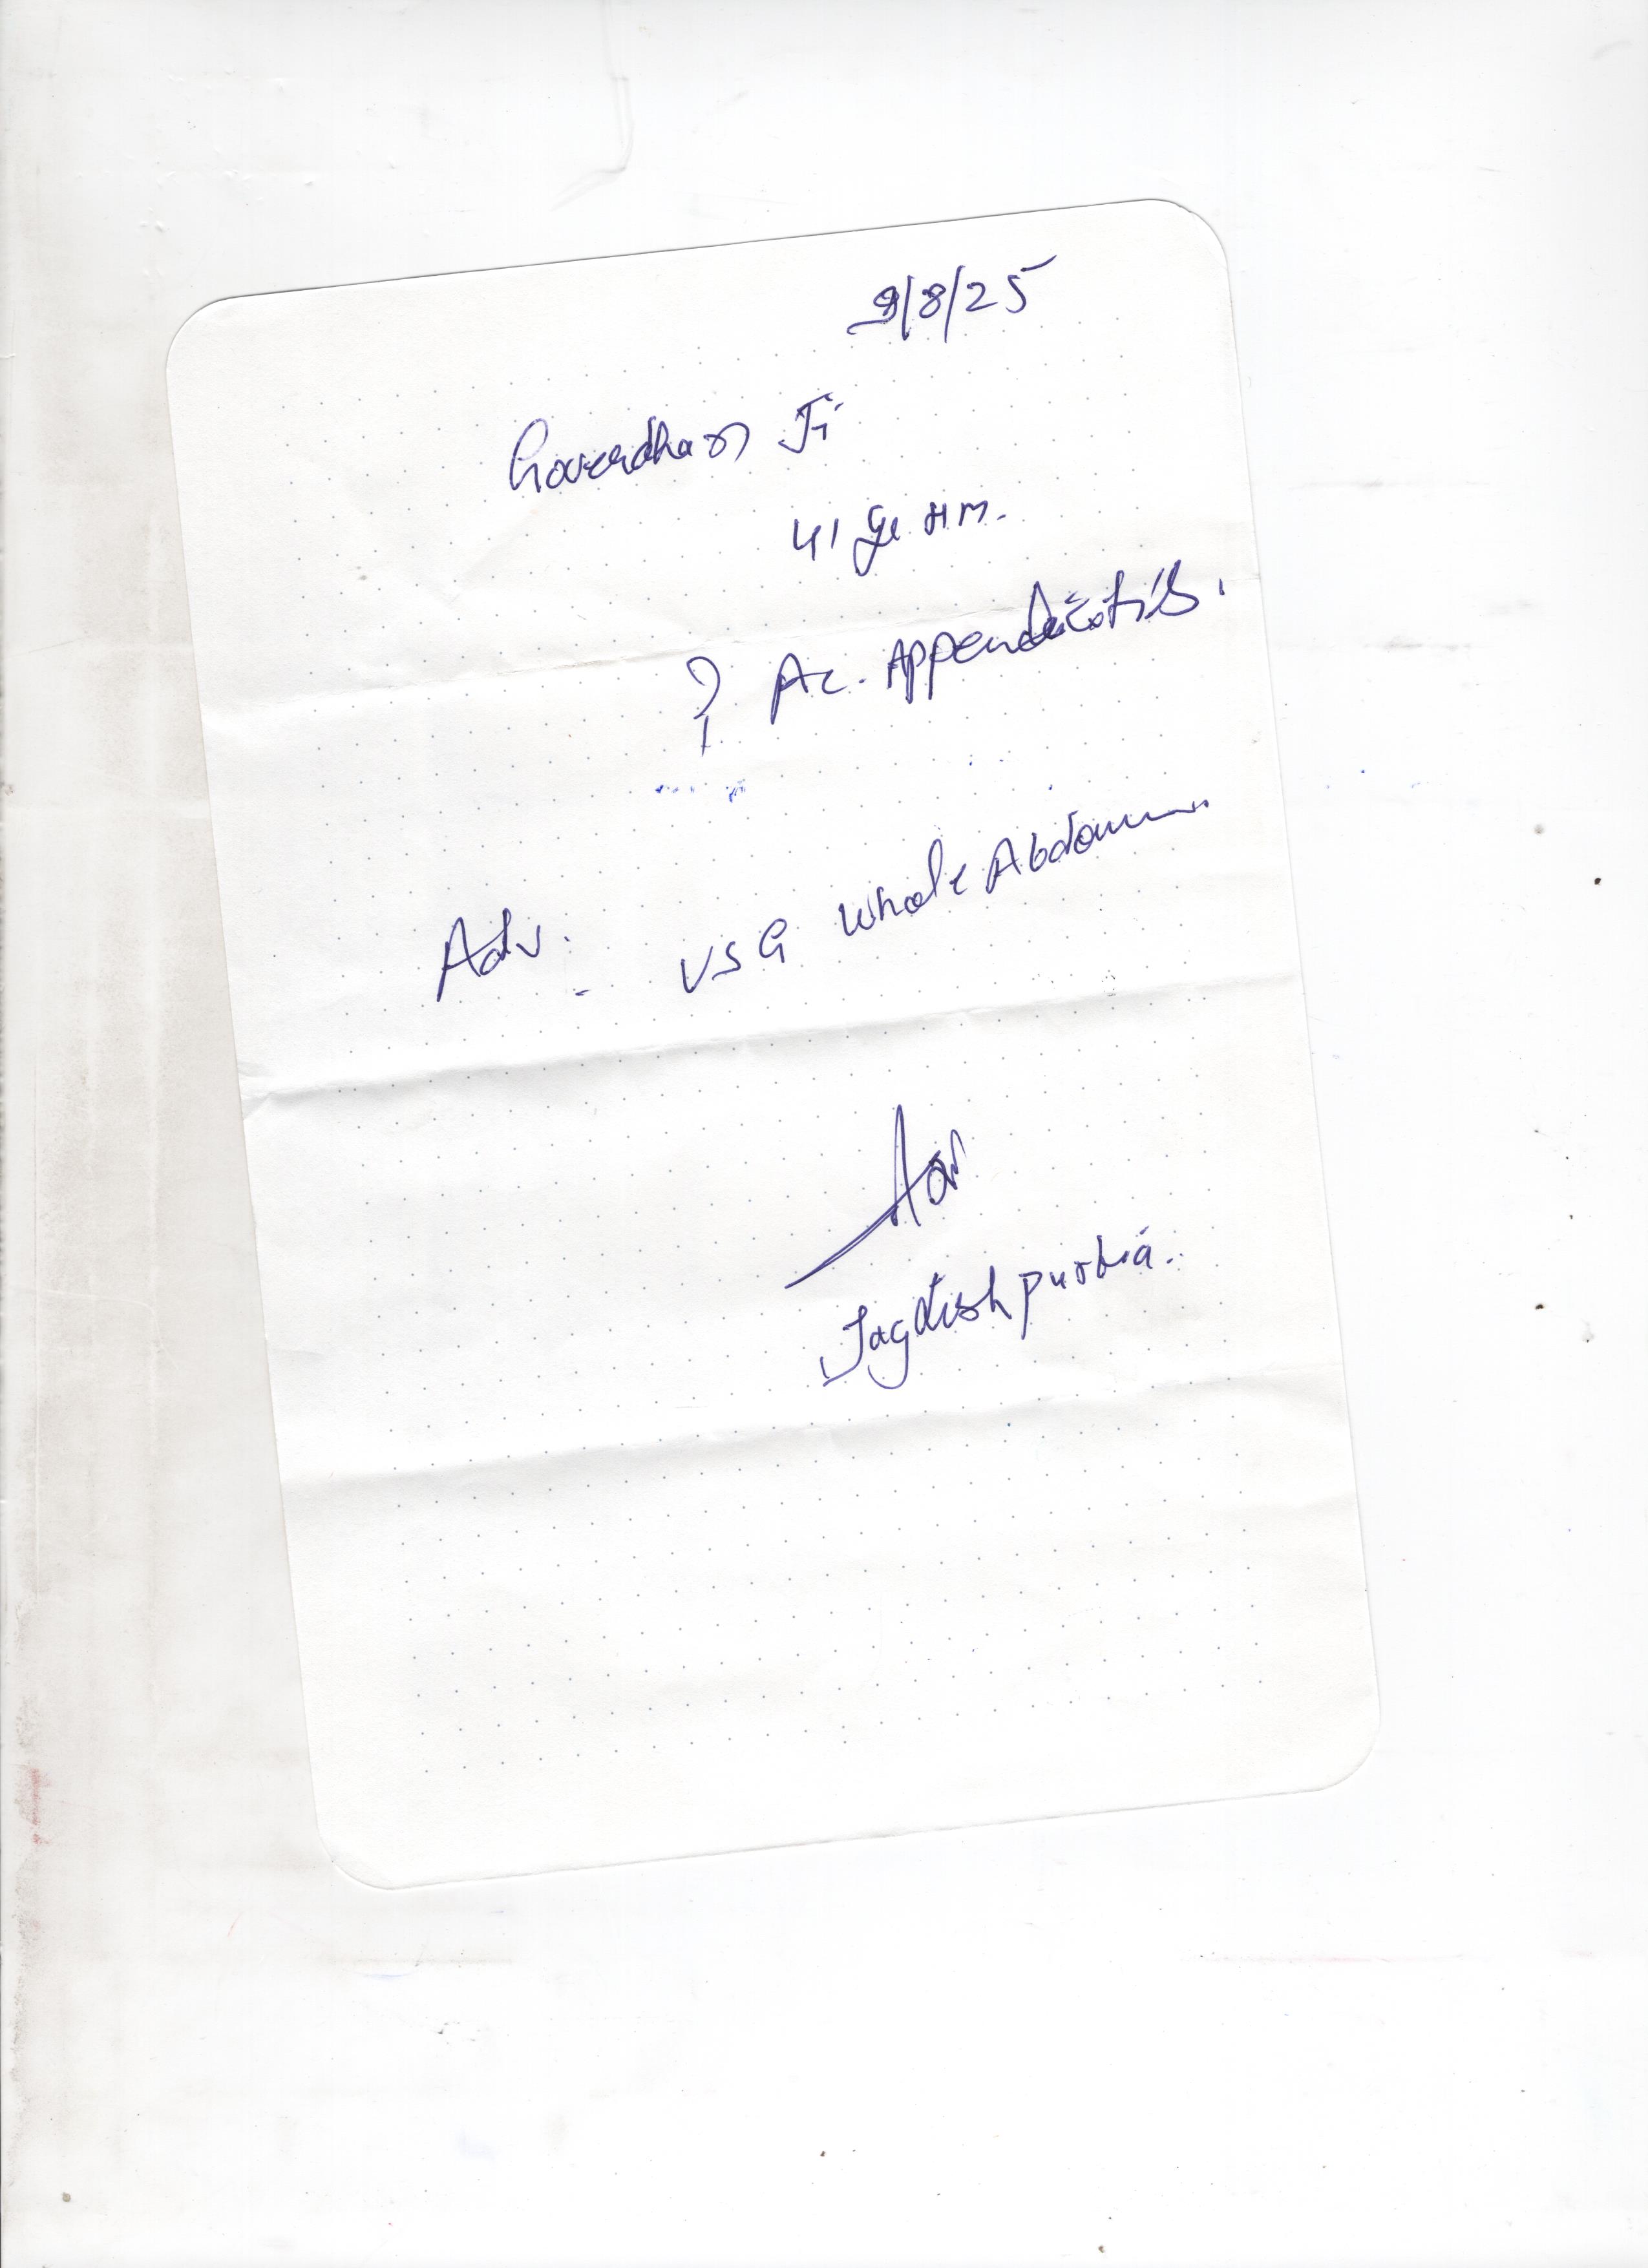 9/8/25
Goverdhan Ji
41 ye HM.
? Ac. Appendicitis.
Adv. - USG Whole Abdomen
Jagdish purbia.